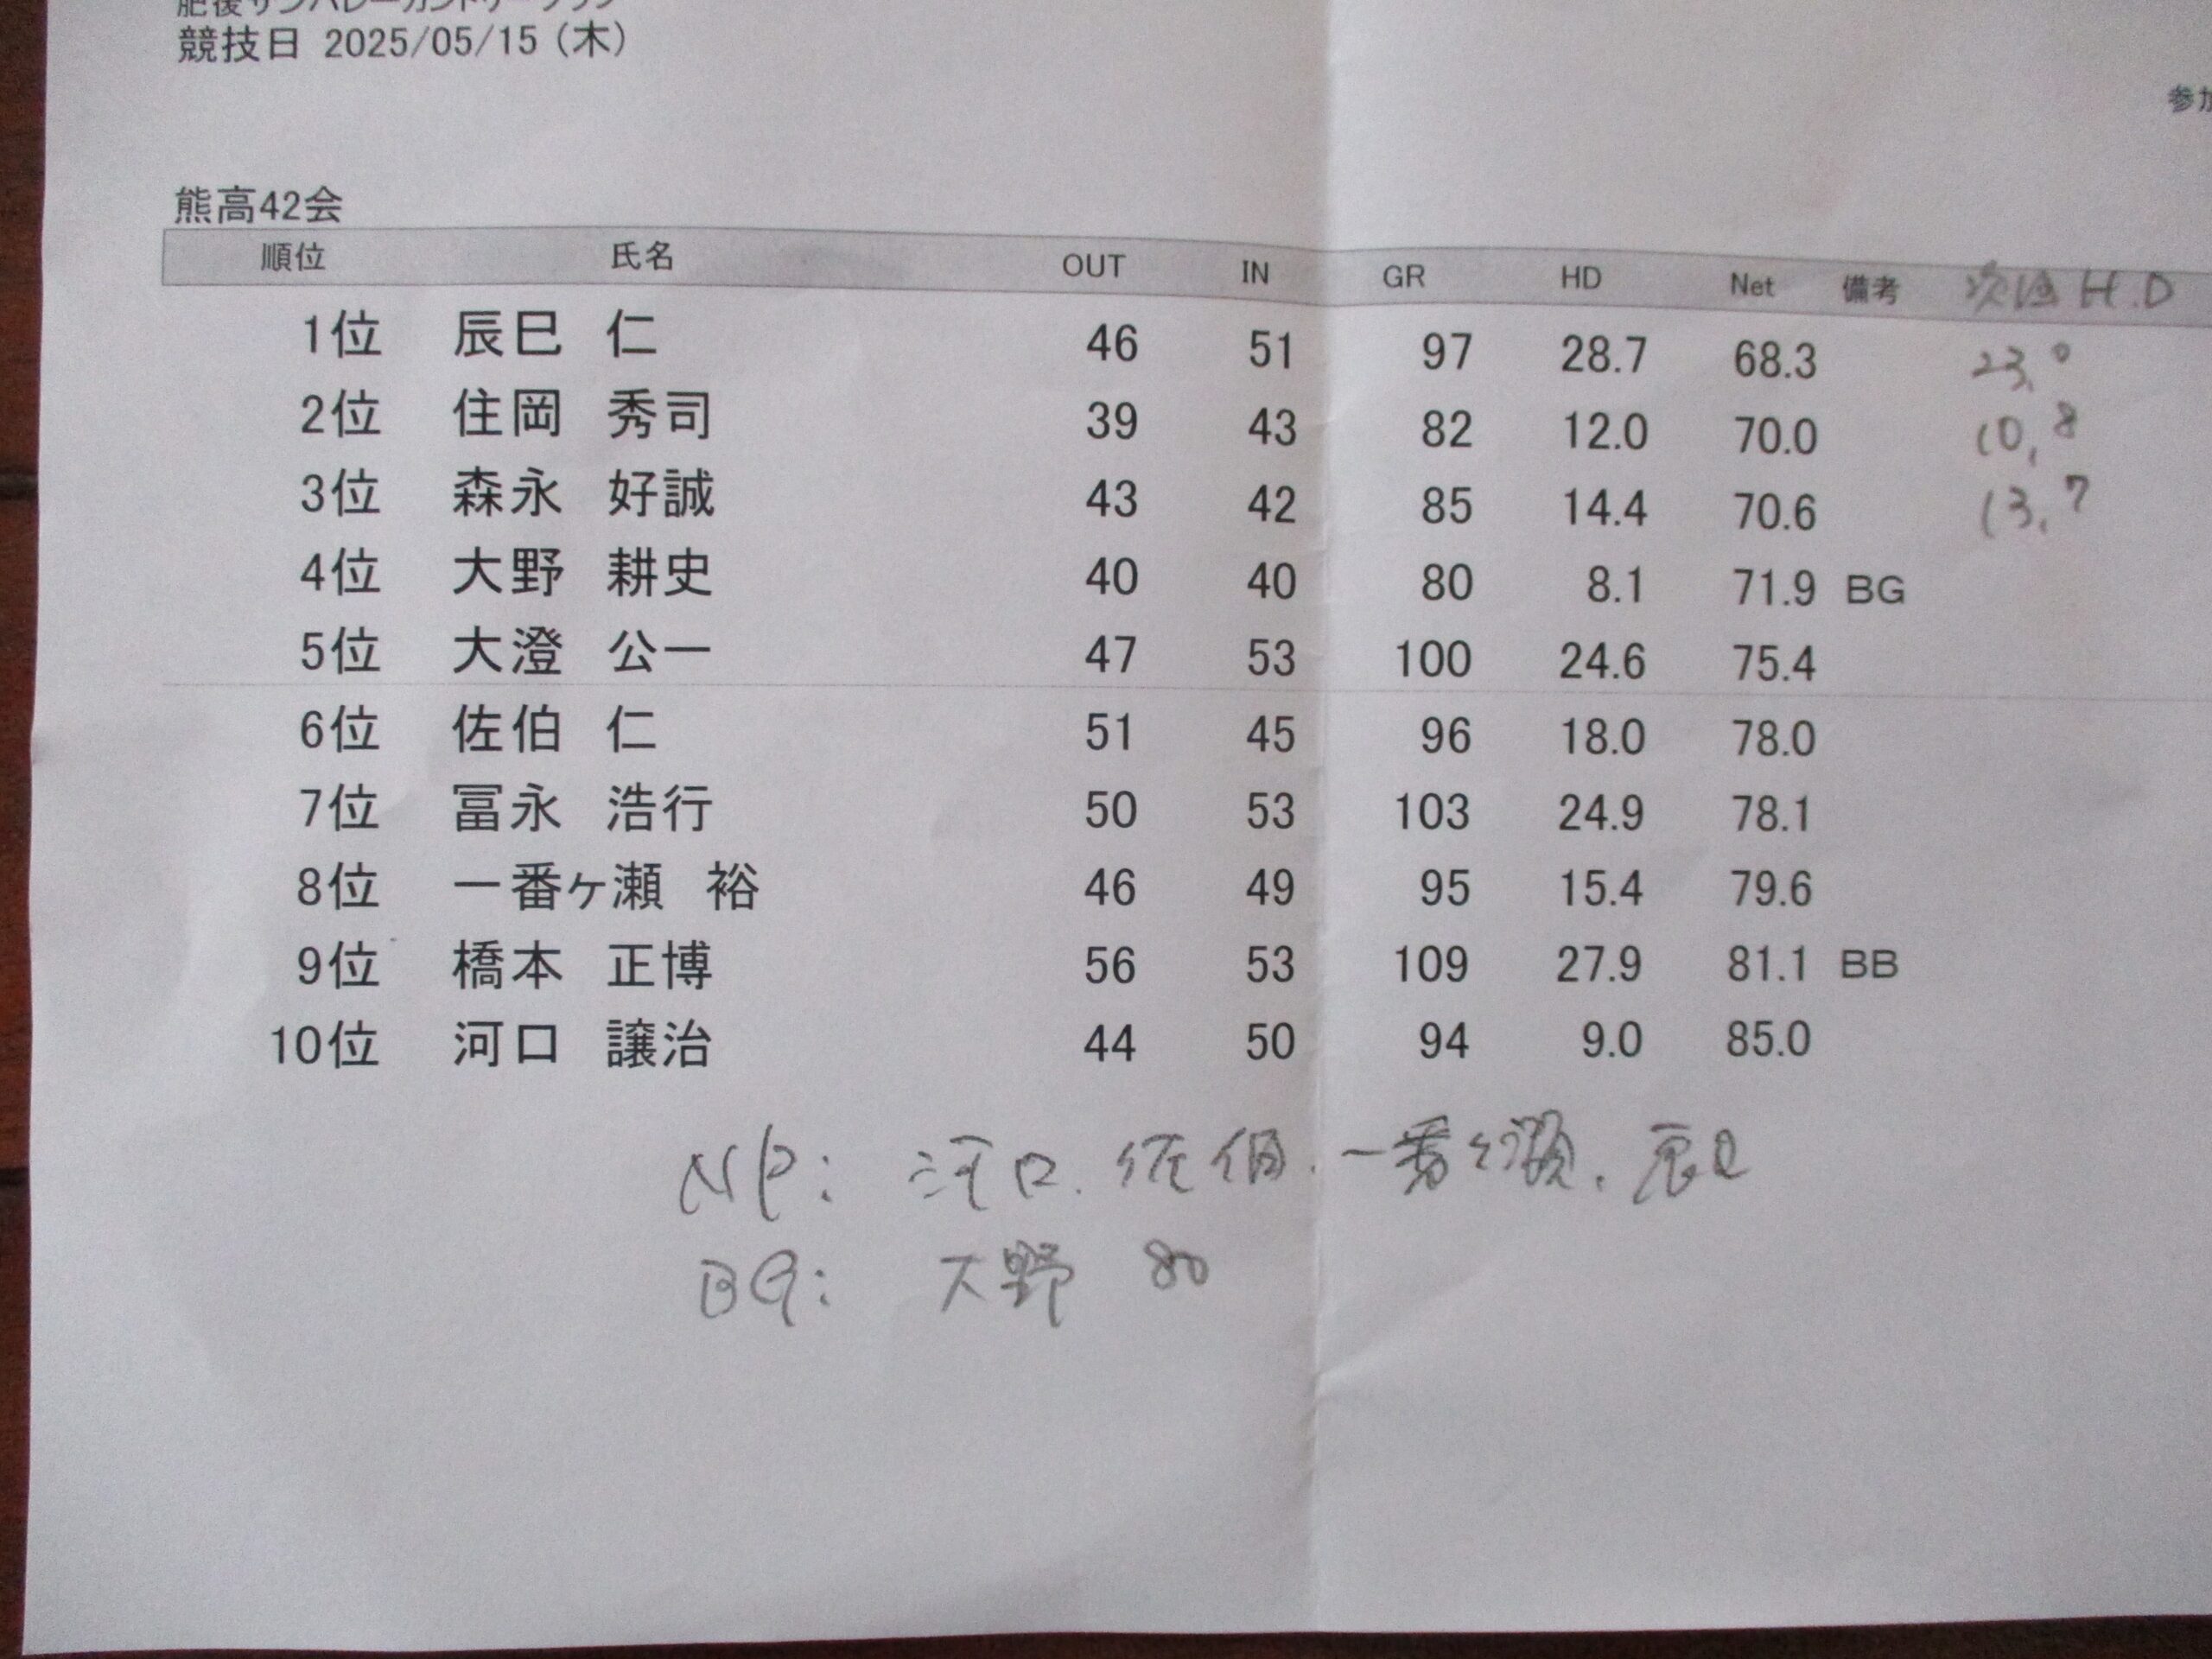 肥後サンバレーカントリークラブ
競技日 2025/05/15 (木)
参加
熊高42会
順位 氏名 OUT IN GR HD Net 備考 次回 H.D
1位 辰巳 仁 46 51 97 28.7 68.3 23.0
2位 住岡 秀司 39 43 82 12.0 70.0 10,8
3位 森永 好誠 43 42 85 14.4 70.6 13.7
4位 大野 耕史 40 40 80 8.1 71.9 BG
5位 大澄 公一 47 53 100 24.6 75.4
6位 佐伯 仁 51 45 96 18.0 78.0
7位 冨永 浩行 50 53 103 24.9 78.1
8位 一番ヶ瀬 裕 46 49 95 15.4 79.6
9位 橋本 正博 56 53 109 27.9 81.1 BB
10位 河口 譲治 44 50 94 9.0 85.0
NP: 河口. 佐伯. 一番ヶ瀬. 辰巳
BG: 大野 80